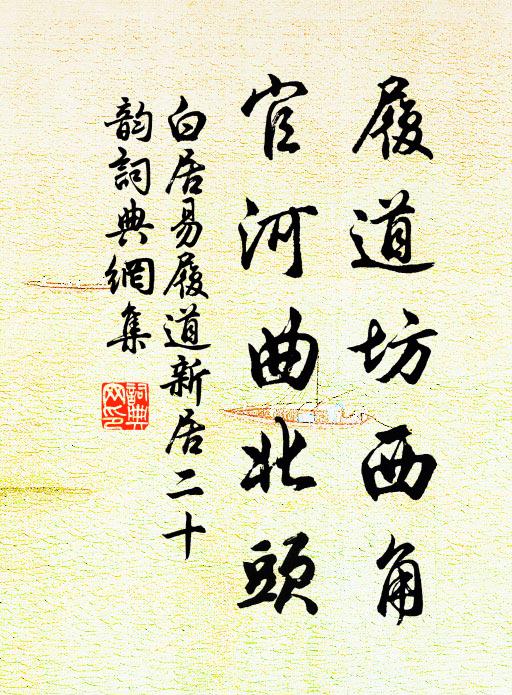 履道坊西角
官河曲北頭
白居易履道新居二十
韵詞典網集
詞典
网印